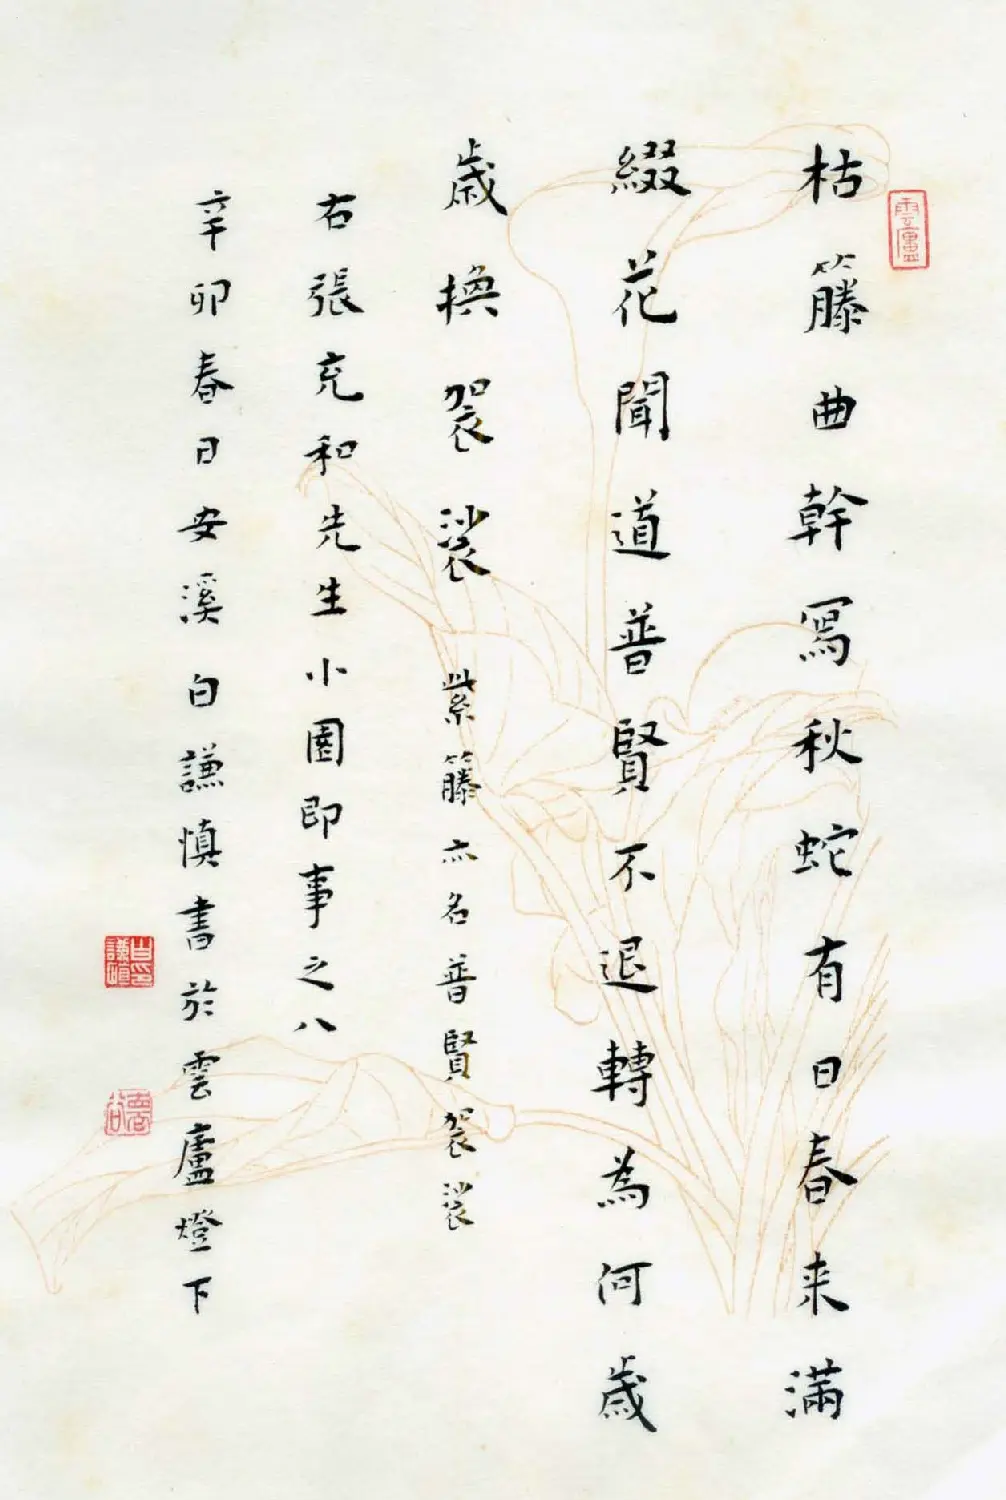 枯籐曲幹寫秋蛇有日春来滿
綴花聞道普賢不退轉為何歲
歲換袈裟 紫籐亦名普賢袈裟
右張充和先生小園即事之八
辛卯春日安溪白謙慎書於雲廬燈下
雲廬
白謙慎印